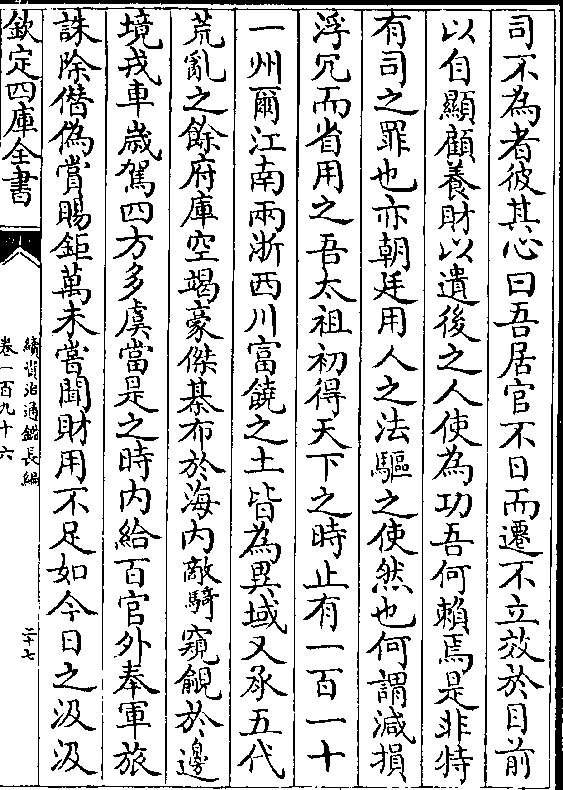 司不為者彼其心曰吾居官不日而遷不立效於目前
以自顯顧養財以遺後之人使為功吾何賴焉是非特
有司之罪也亦朝廷用人之法驅之使然也何謂減損
浮冗而省用之吾太祖初得天下之時止有一百一十
一州爾江南兩浙西川富饒之土皆為異域又承五代
荒亂之餘府庫空竭豪傑棊布於海内敵騎窺覦於邊
境戎車歲駕四方多虞當是之時内給百官外奉軍旅
誅除僭偽賞賜鉅萬未嘗聞財用不足如今日之汲汲
欽定四庫全書
續資治通鑑長編
卷一百九十六
二十七